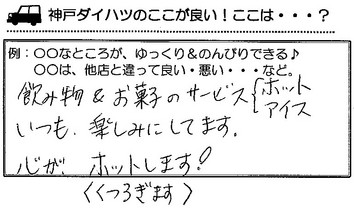 神戸ダイハツのここが良い！ここは・・・？
例：〇〇なところが、ゆっくり＆のんびりできる♪
〇〇は、他店と違って良い・悪い・・・など。
飲み物＆お菓子のサービス{ホット
アイス
いつも、楽しみにしてます。
心が、ホットします！
〈くつろぎます〉